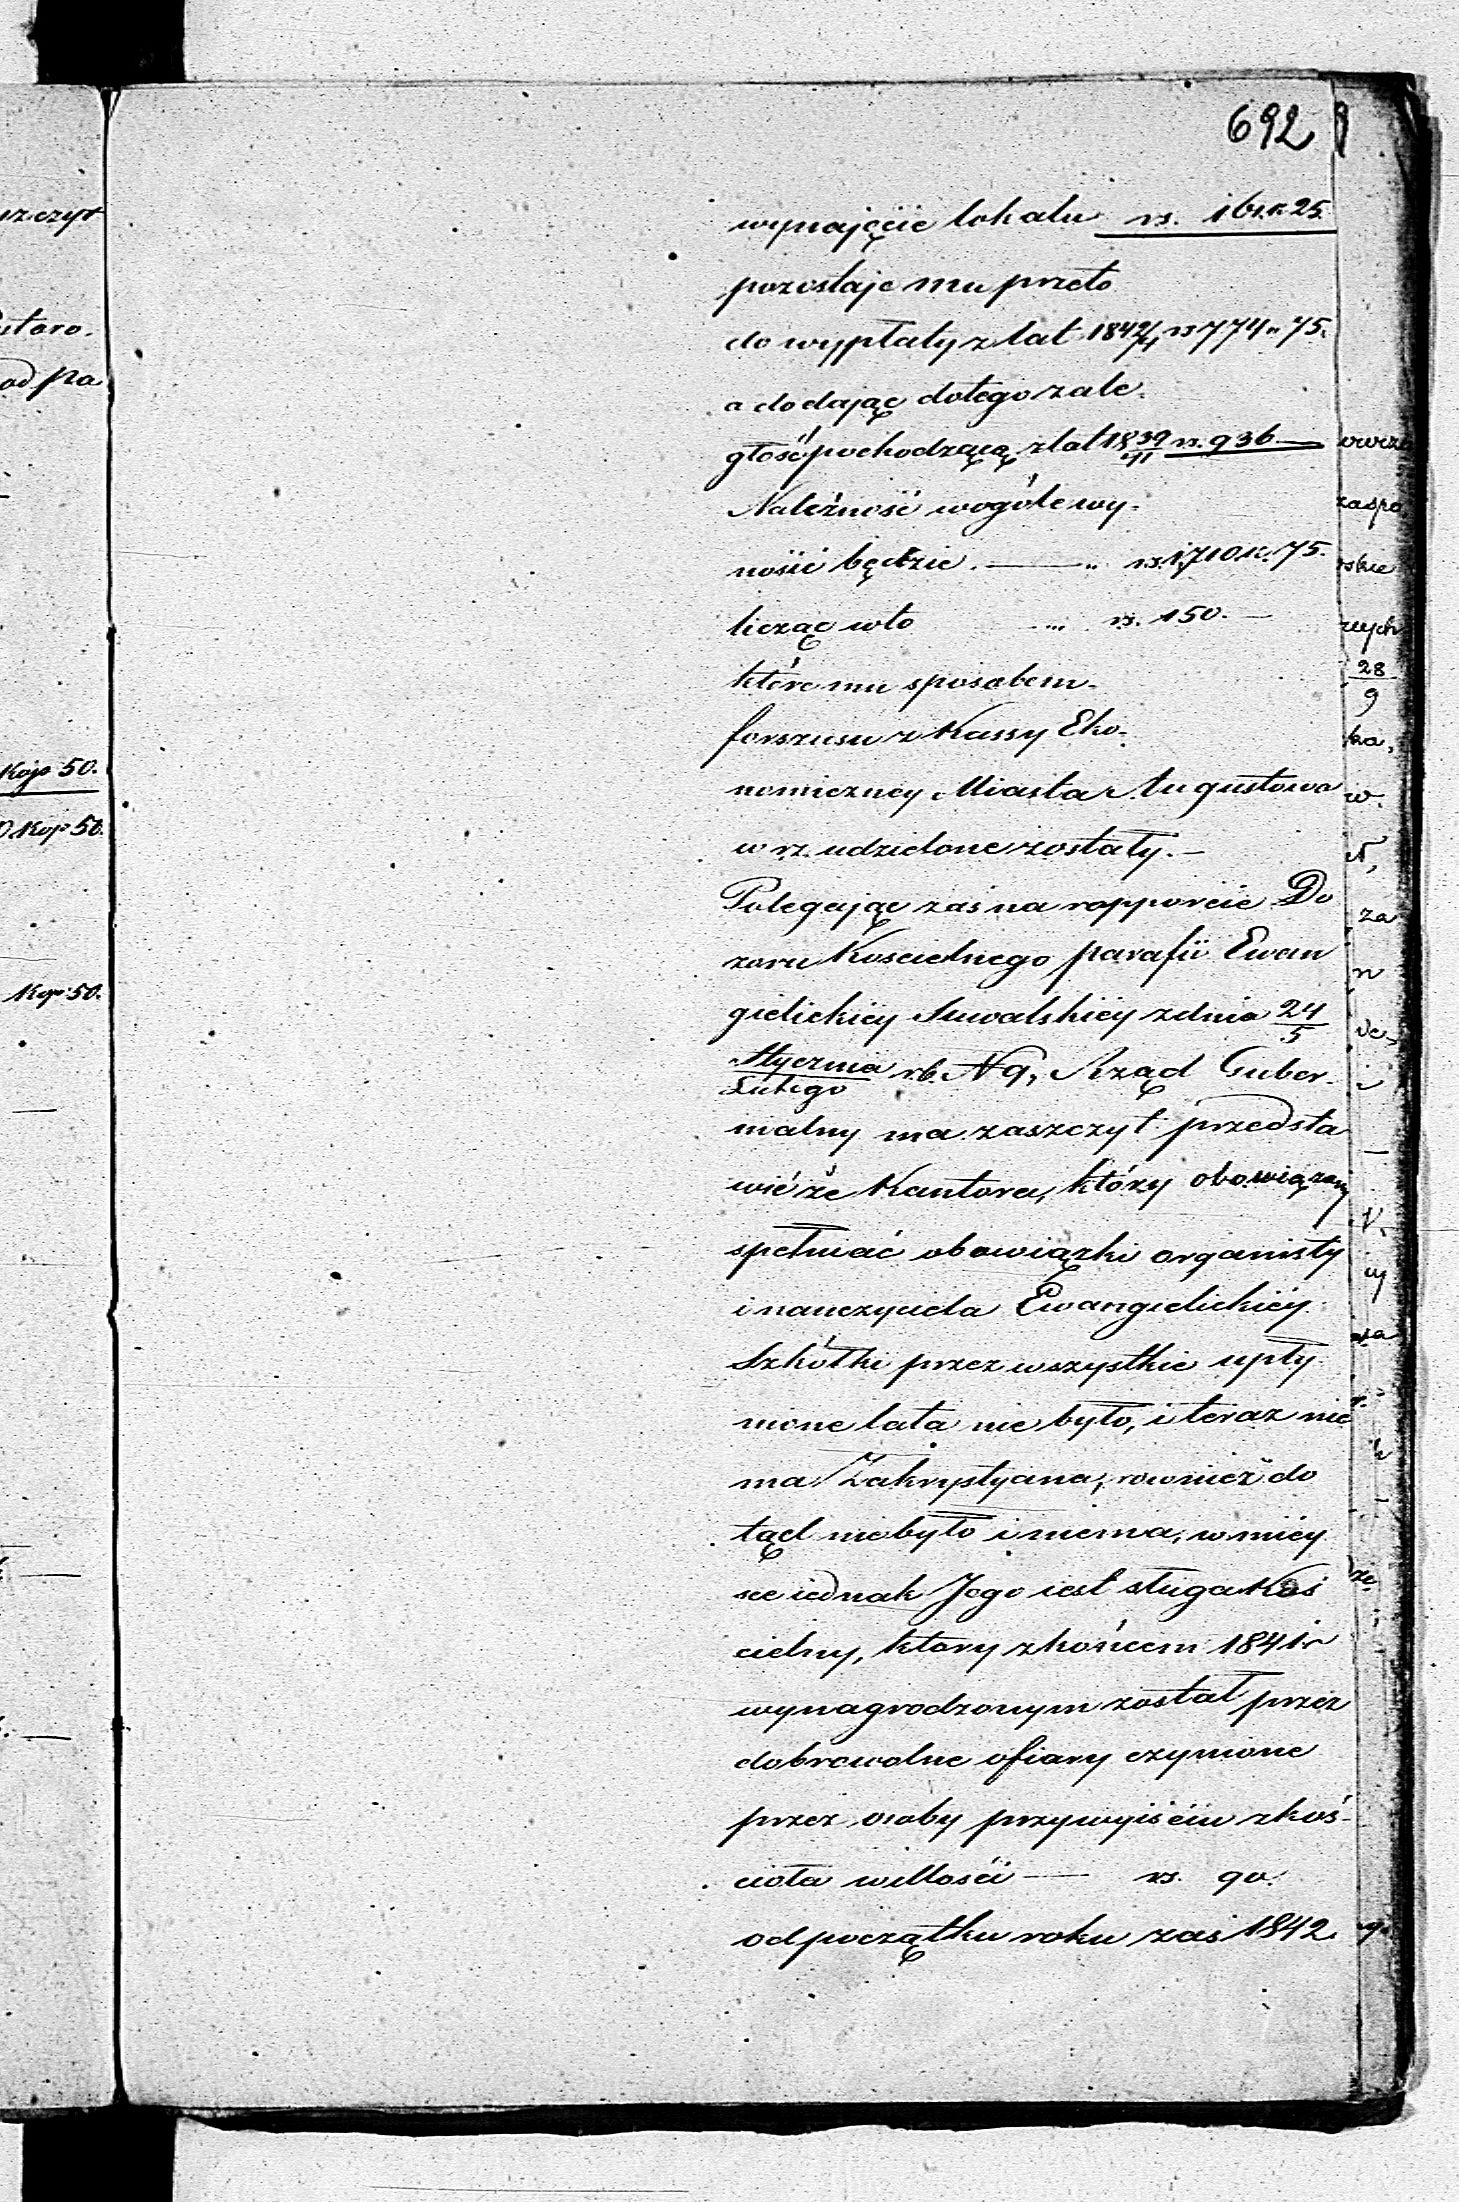 692
wynajęcie lokalu rs. 161. k. 25.
pozostaje mu przeto
do wypłaty z lat 1842/4 rs 774 " 75.
a dodając do tego zale.
głość pochodzącą z lat 1839/41 rs. 936. —
Należność wogóle wy-
nosić będzie. — " rs. 1,710 k. 75.
licząc w to " rs. 150. —
które mu sposobem
forszusu z Kassy Eko-
nomiczney Miasta Augustowa
w rz. udzielone zostały. —
Polegając zaś na rapporcie Do
zoru Kościelnego parafii Ewan
gielickiéy Suwalskiéy z dnia 24/5
Stycznia/Lutego r.b. N 9, Rząd Guber-
nialny ma zaszczyt przedsta
wić że Kantora, który obowiązany
spełniać obowiązki organisty
i nauczyciela Ewangelickiéy
Szkółki przez wszystkie upły
nione lata nie było, i teraz nie
ma Zakrystyana, rownież do
tąd nie było i niema, w miey
sce iednak Jego iest sługa Koś
cielny, ktory z końcem 1841 r
wynagrodzonym został przez
dobrowolne ofiary czynione
przez osoby przy wyiściu z koś-
cioła w illości — rs. 90.
od początku roku zaś 1842.
uszczyt
ad pa
Kop 50.
Kop 50.
Kop 50.
zaspo.
28/9
ka,
w.
za